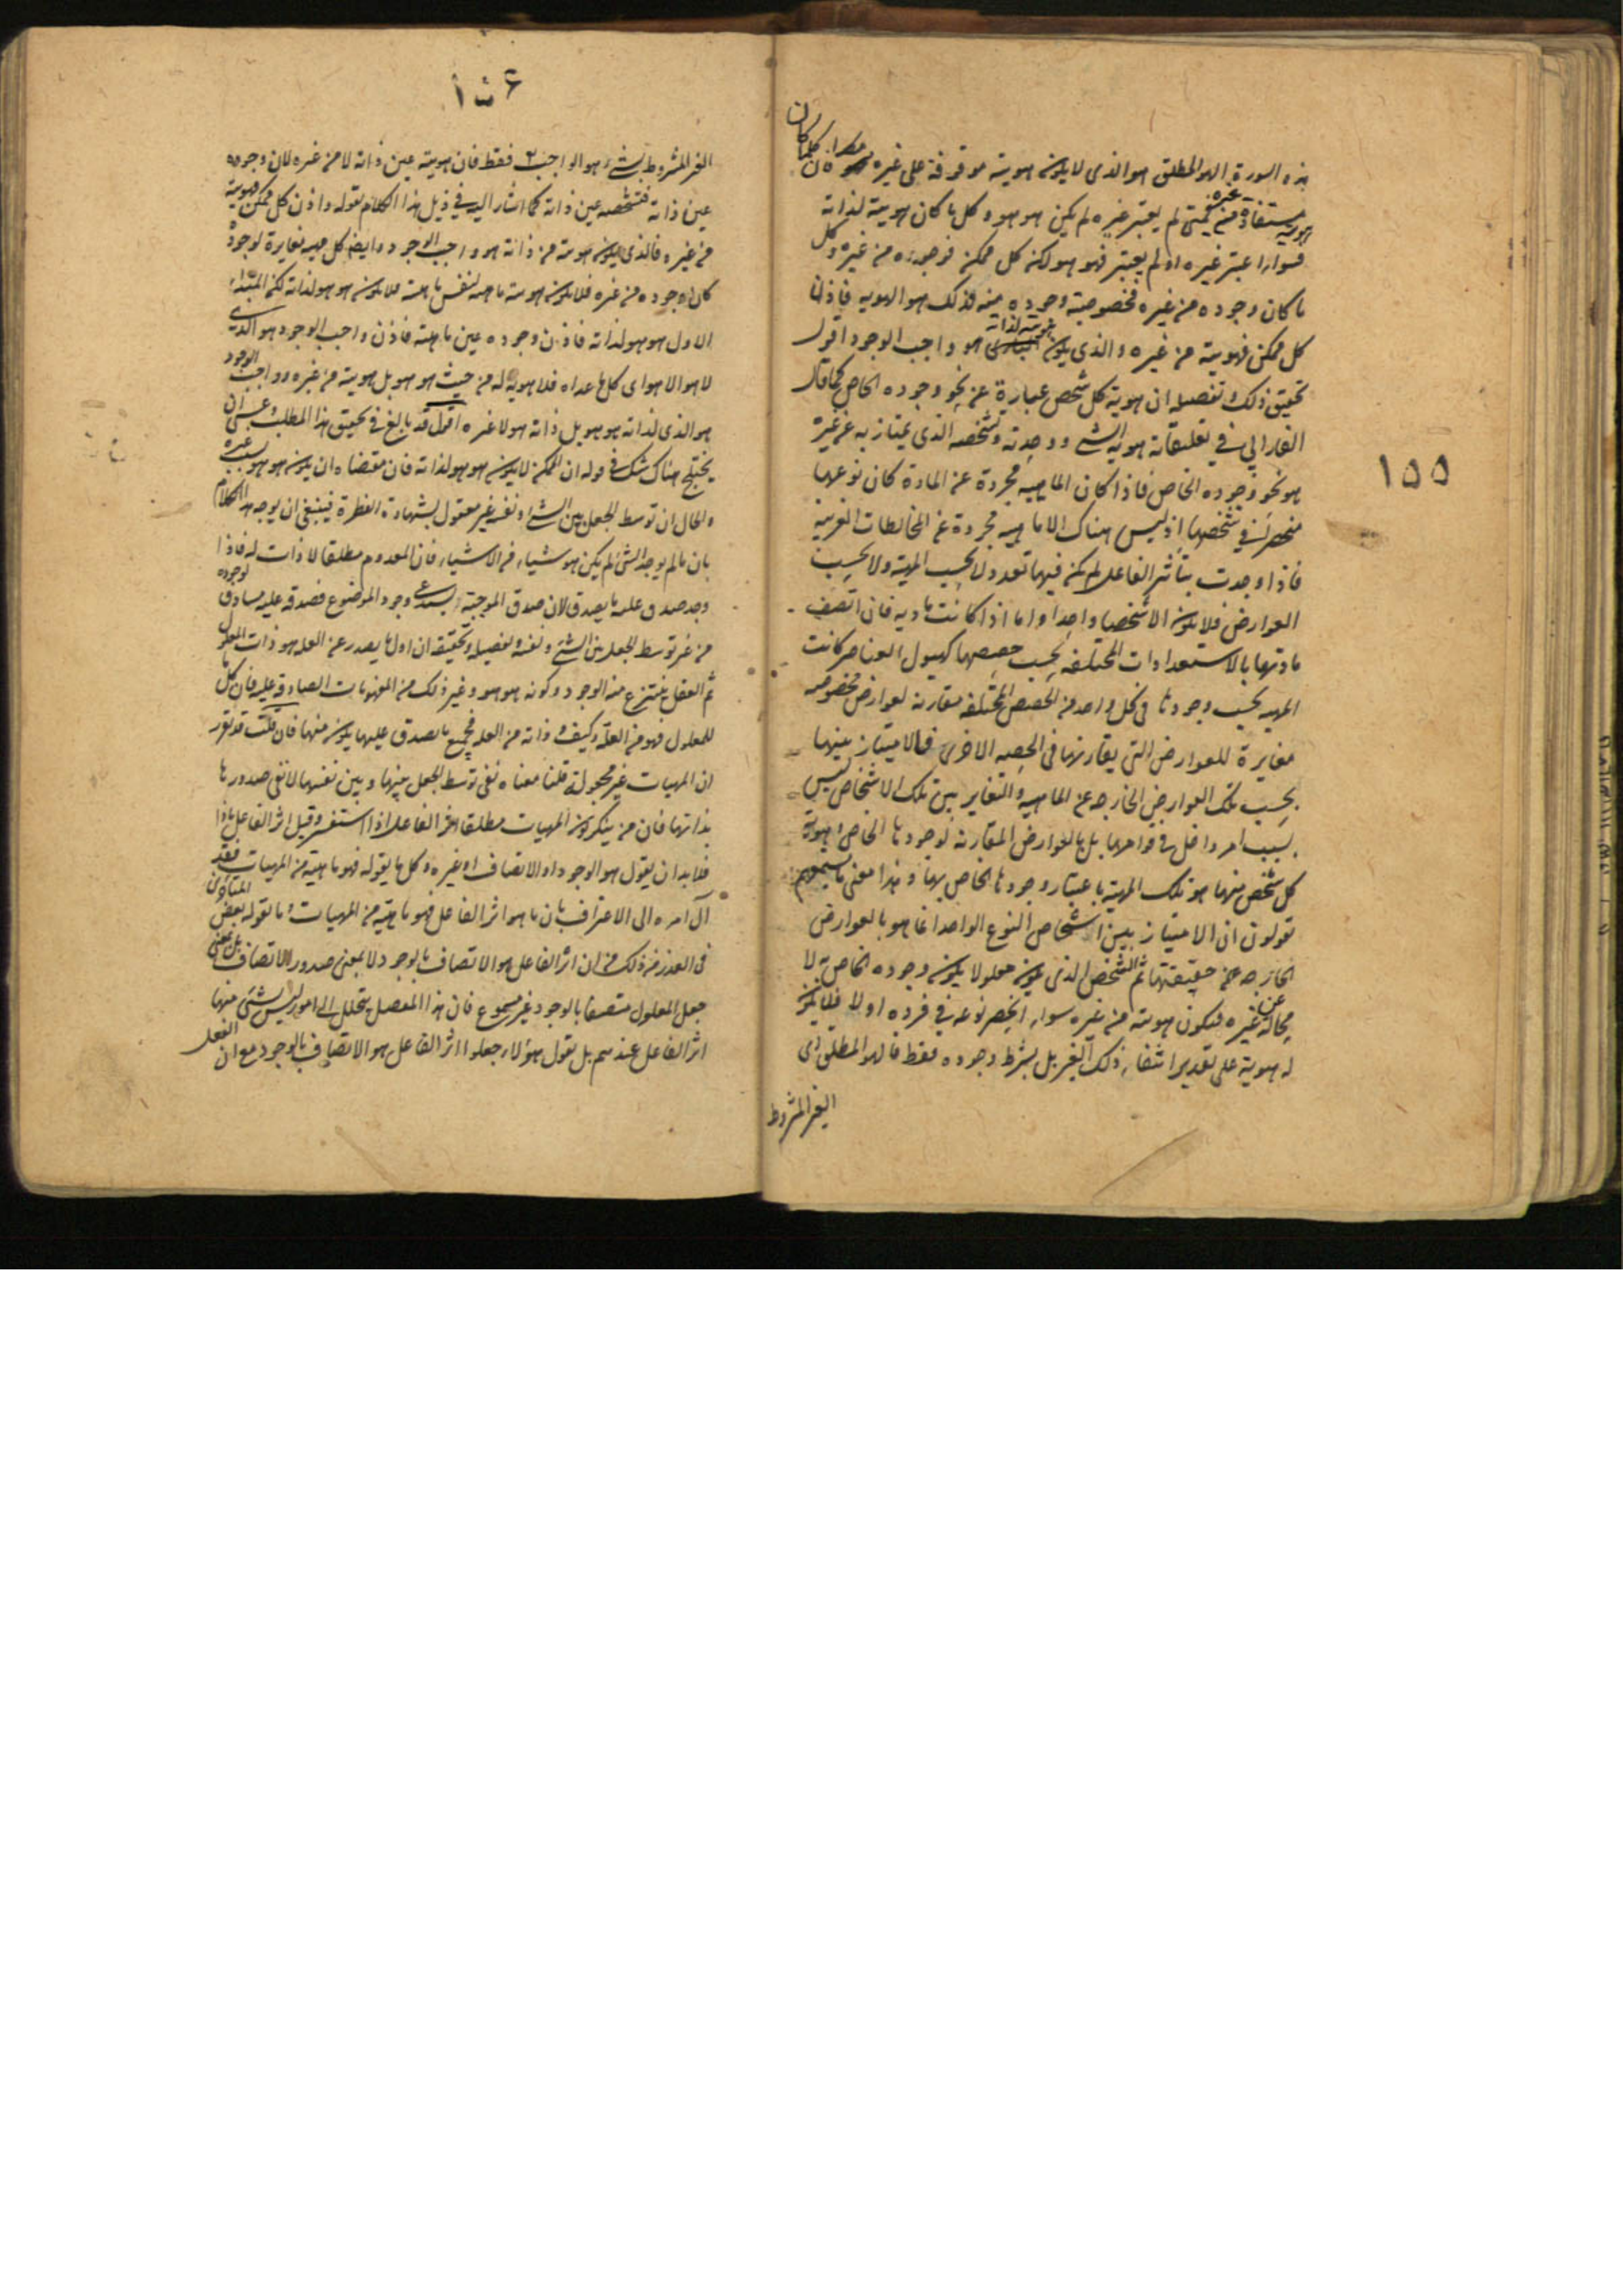 ١٥٥
هذه السورة الهو المطلق هو الذى لا يكون هويته موقوفة على غيره فان كل ما كان
هويته مستفادة من غيره فمتى لم يعتبر غيره لم يكن هو هو وكل ما كان هويته لذاته
فسواء اعتبر غيره او لم يعتبر فهو هو لكن كل ممكن فوجوده من غيره وكل
ما كان وجوده من غيره فخصوصية وجوده منه وذلك هو الهوية فاذن
كل ممكن فهويته من غيره والذى يكون هويته لذاته هو واجب الوجود اقول
تحقيق ذلك وتفصيله ان هوية كل شخص عبارة عن نحو وجوده الخاص كما قال
الفارابي في تعليقاته هوية الشئ ووحدته وتشخصه الذى يمتاز به عن غيره
هو نحو وجوده الخاص فاذا كان الماهية مجردة عن المادة كان نوعها
منحصرا في شخصها اذ ليس هناك الا ماهية مجردة عن المخالطات الغريبة
فاذا وجدت بتأثير الفاعل لم يكن فيها تعدد لا بحسب المهية ولا بحسب
العوارض فلا يكون الا شخصا واحدا واما اذا كانت مادية فان اتصف
مادتها بالاستعدادات المختلفة بحسب حصصها كهيولى العناصر كانت
المهية بحسب وجودها فى كل واحد من الحصص المختلفة مقارنة لعوارض مخصوصة
مغايرة للعوارض التى يقارنها فى الحصة الاخرى فالامتياز بينهما
بحسب تلك العوارض الخارجة عن الماهية والتغاير بين تلك الاشخاص ليس
بسبب امر داخل فى قوامها بل بالعوارض المقارنة لوجودها الخاص وهوية
كل شخص منها هو تلك المهية باعتبار وجودها الخاص بها وهذا معنى ما تسمعهم
تقولون ان الامتياز بين اشخاص النوع الواحد انما هو بالعوارض
الخارجة عن حقيقتها ثم الشخص الذى يكون معلولا يكون وجوده الخاص به لا
محالة عن غيره فيكون هويته من غيره سواء انحصر نوعه في فرده او لا فلا يكون
له هوية على تقدير انتفاء ذلك الغير بل بشرط وجوده فقط فالهو المطلق اى
الغير المشروط
١٥٦
الغير المشروط بشئ هو الواجب تع فقط فان هويته عين ذاته لا من غيره لان وجوده
عين ذاته فتشخصه عين ذاته كما اشار اليه في ذيل هذا الكلام بقوله واذن كل ممكن فهويته
من غيره فالذى يكون هويته من ذاته هو واجب الوجود وايضا كل مهية مغايرة لوجود
كان وجوده من غيره فلا يكون هويته ماهيته لنفس ماهيته فلا يكون هو هو لذاته لكن المبدأ
الاول هو هو لذاته فاذن وجوده عين ماهيته فاذن واجب الوجود هو الذى
لا هو الا هو اى كل ما عداه فلا هوية له من حيث هو هو بل هويته من غيره وواجب الوجود
هو الذى لذاته هو هو بل ذاته هو لا غيره اقول قد بالغ فى تحقيق هذا المطلب وعسى ان
يختلج هناك شك فى قوله ان الممكن لا يكون هو هو لذاته فان مقتضاه ان يكون هو هو بسبب غيره
والحال ان توسط الجعل بين الشئ ونفسه غير معقول بشهادة الفطرة فينبغى ان يوجه هذا الكلام
بان ما لم يوجد الشئ لم يكن هو شيئا من الاشياء فان المعدوم مطلقا لا ذات له فاذا
وجد صدق عليه ما يصدق لان صدق الموجبة يستدعى وجود الموضوع فصدقه عليه مساوق لوجوده
من غير توسط الجعل بين الشئ ونفسه وتفصيله وتحقيقه ان اول ما يصدر عن العلة هو ذات المعلول
ثم العقل ينتزع منه الوجود وكونه هو هو وغير ذلك من المفهومات الصادقة عليه فان كل ما
للمعلول فهو من العلة وكيف لا وذاته من العلة فجميع ما يصدق عليها يكون منها فان قلت قد تقرر
ان المهيات غير مجعولة قلنا معناه نفى توسط الجعل بينها وبين نفسها لا نفى صدورها
بذاتها فان من ينكر كون المهيات مطلقا اثر الفاعل اذا استفسر وقيل اثر الفاعل ماذا
فلا بد ان يقول هو الوجود او الاتصاف او غيره وكل ما يقوله فهو ماهية من المهيات فقد
آل امره الى الاعتراف بان ما هو اثر الفاعل فهو ماهية من المهيات وما تقوله بعض المتأخرين
فى العذر من ذلك من ان اثر الفاعل هو الاتصاف بالوجود لا بمعنى صدور الاتصاف بل بمعنى
جعل المعلول متصفا بالوجود غير مسموع فان هذا المفصل يتحلل الى امور ليس شئ منها
اثر الفاعل عندهم بل نقول هؤلاء جعلوا اثر الفاعل هو الاتصاف بالوجود مع ان الفعل